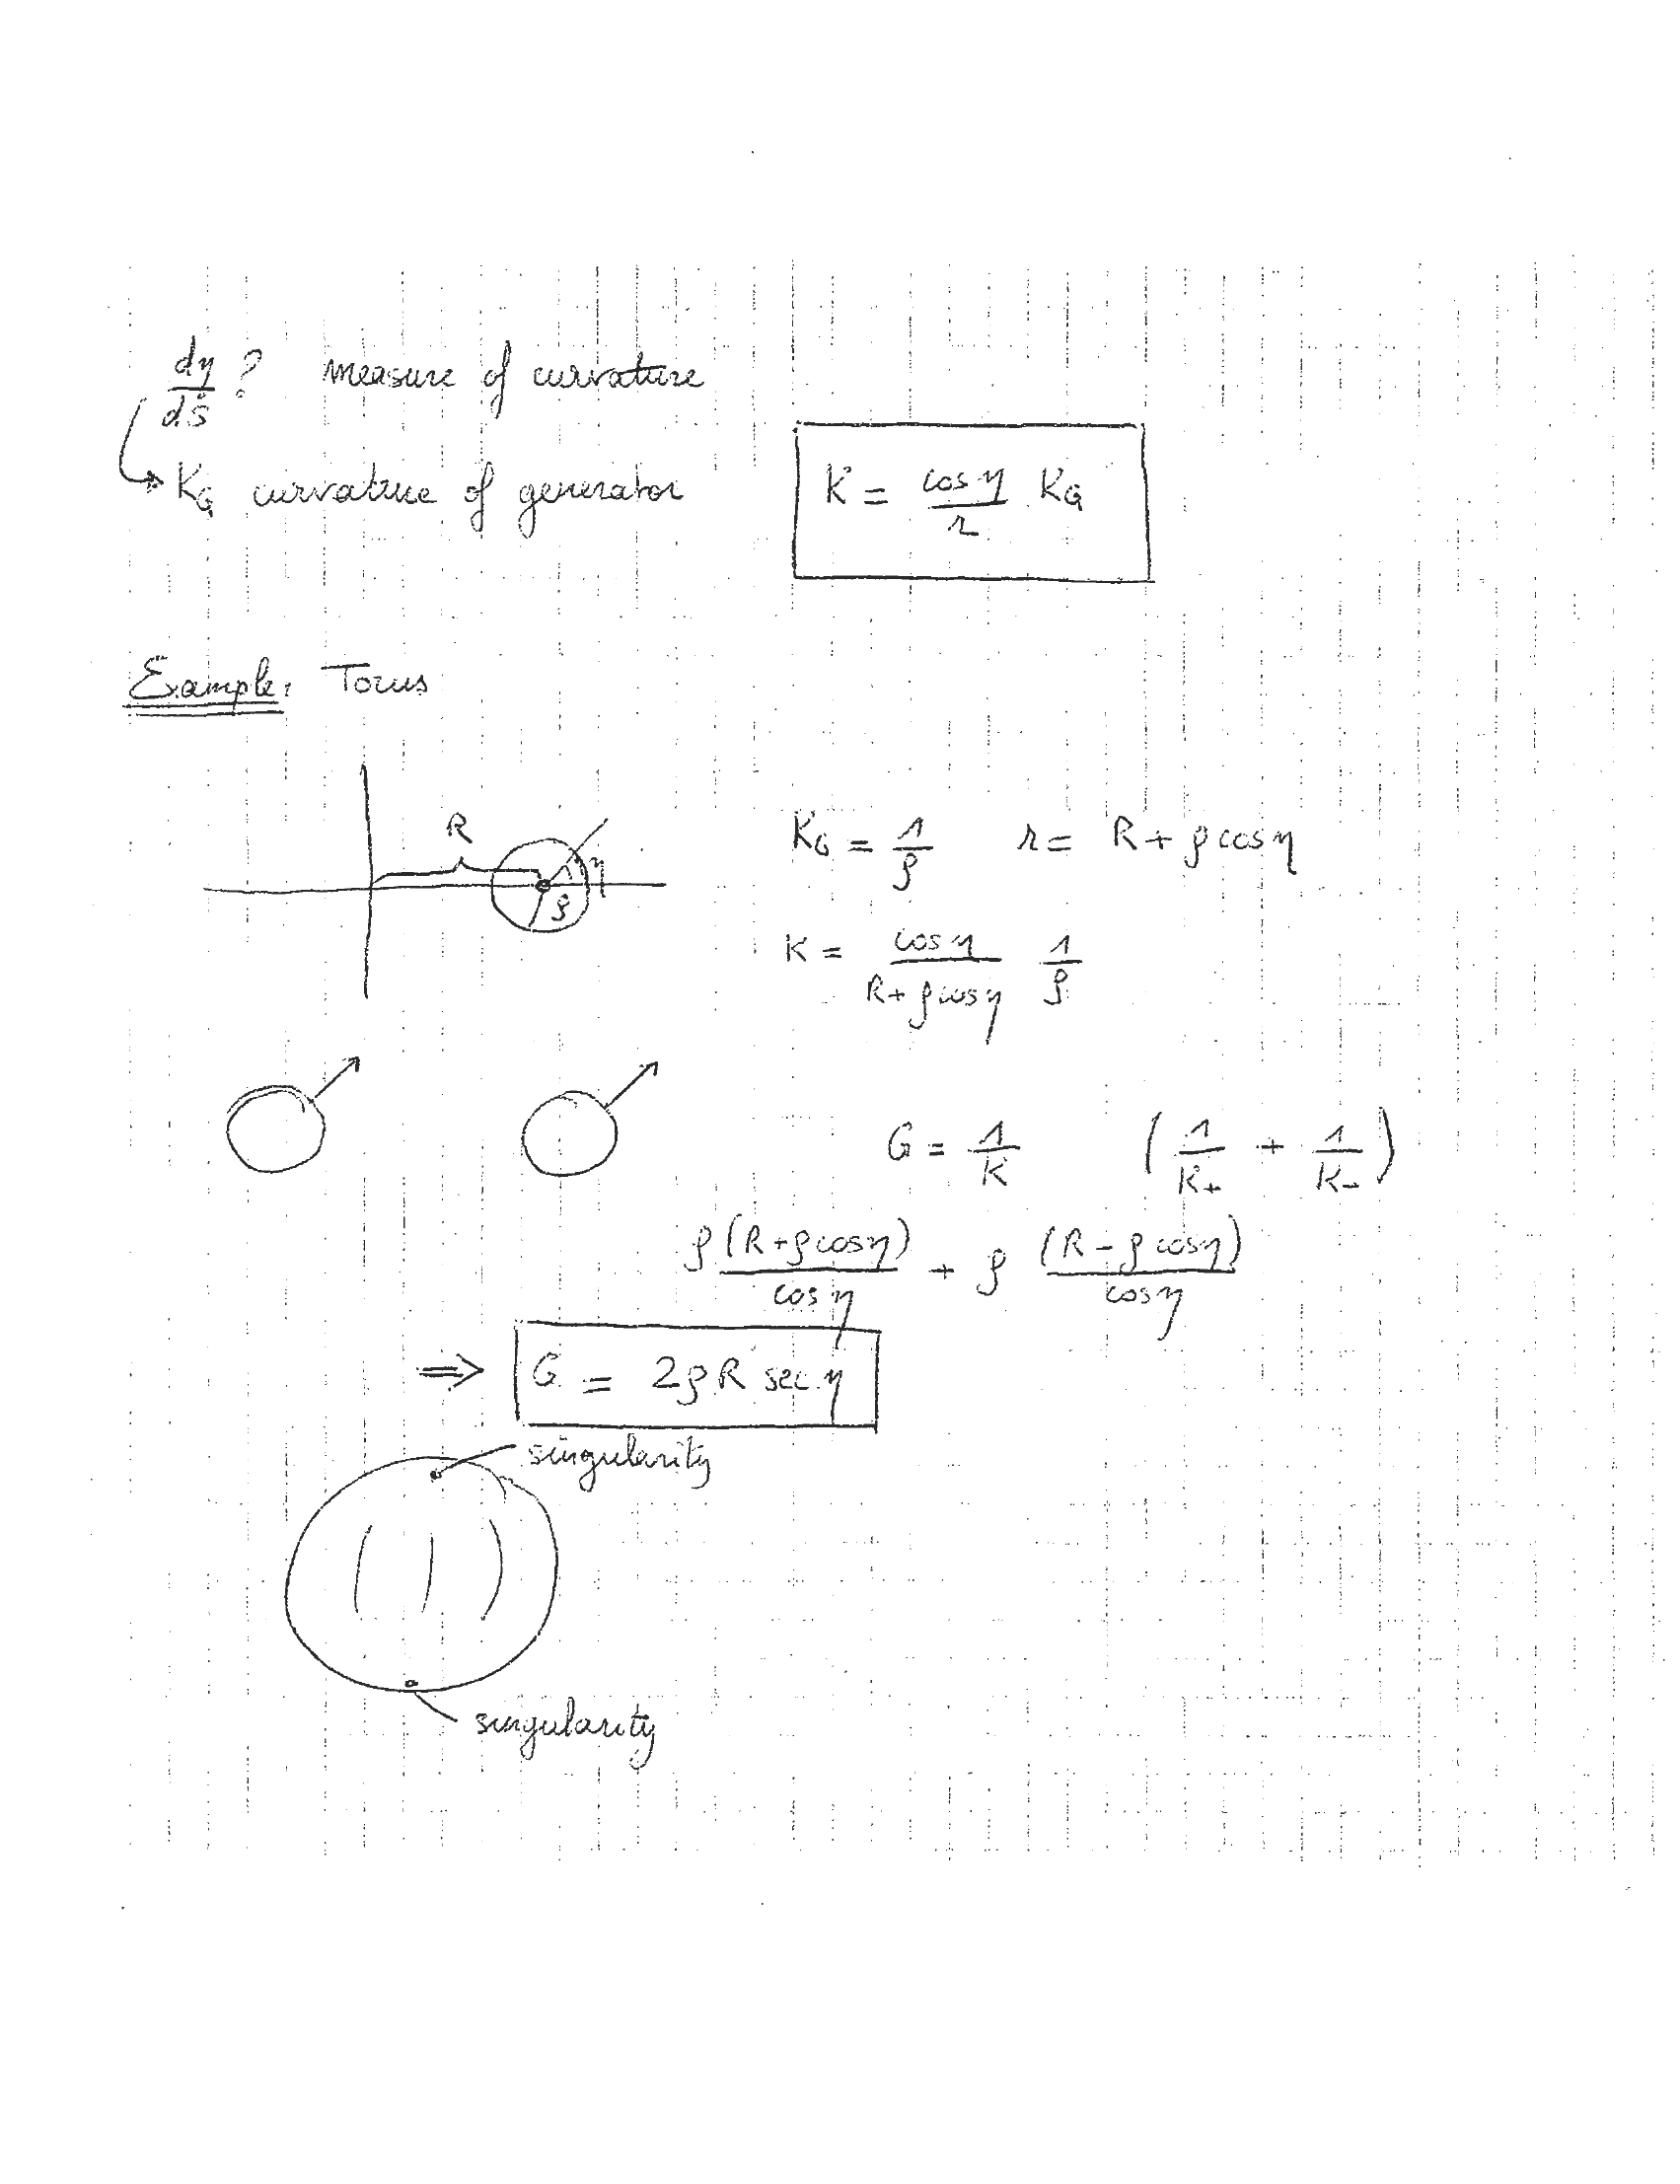 dη/ds ? measure of curvature
K_G curvature of generator
K = cos η / r K_G
Example: Torus
R
η
ρ
K_G = 1/ρ r = R + ρ cos η
K = cos η / (R + ρ cos η) 1/ρ
G = 1/K (1/K₊ + 1/K₋)
ρ (R + ρ cos η) / cos η + ρ (R − ρ cos η) / cos η
⇒ G = 2ρR sec η
singularity
singularity